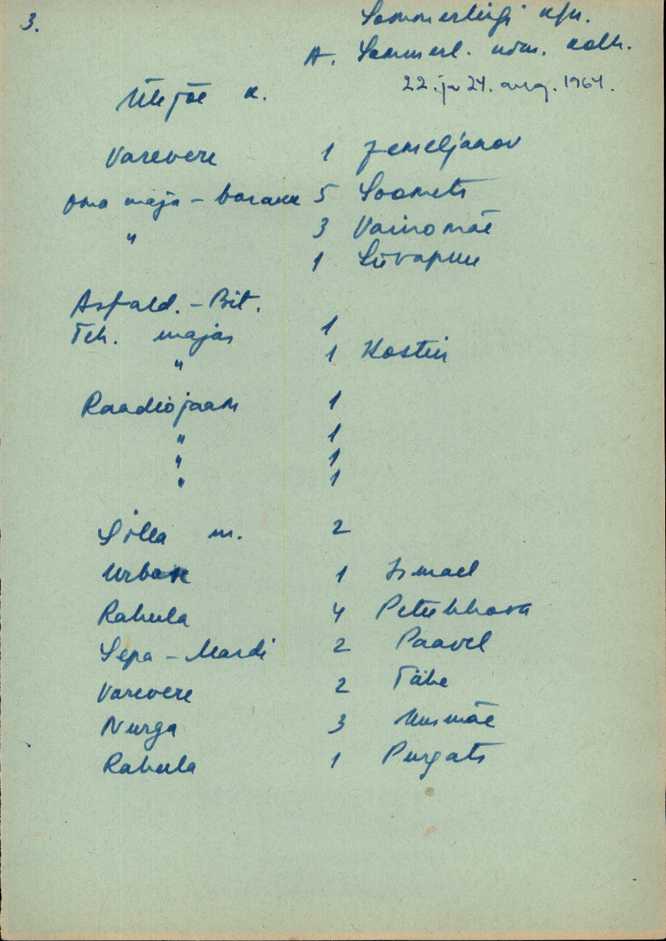 3.
Sommerlingi khn.
A. Sommerl. nim. kolh.
22. ja 24. aug. 1964.
Ülejõe k.
Varevere 1 Jemeljanov
Oma maja - barakk 5 Soomets
" 3 Vainomäe
1 Liivapuu
Asfald. - Bit.
Teh. majas 1
" 1 Kostin
Raadiojaam 1
" 1
" 1
" 1
Silla m. 2
Urbase 1 Ismael
Rahula 4 Petuhhova
Sepa - Mardi 2 Paavel
Varevere 2 Tähe
Nurga 3 Uusmäe
Rahula 1 Purgats